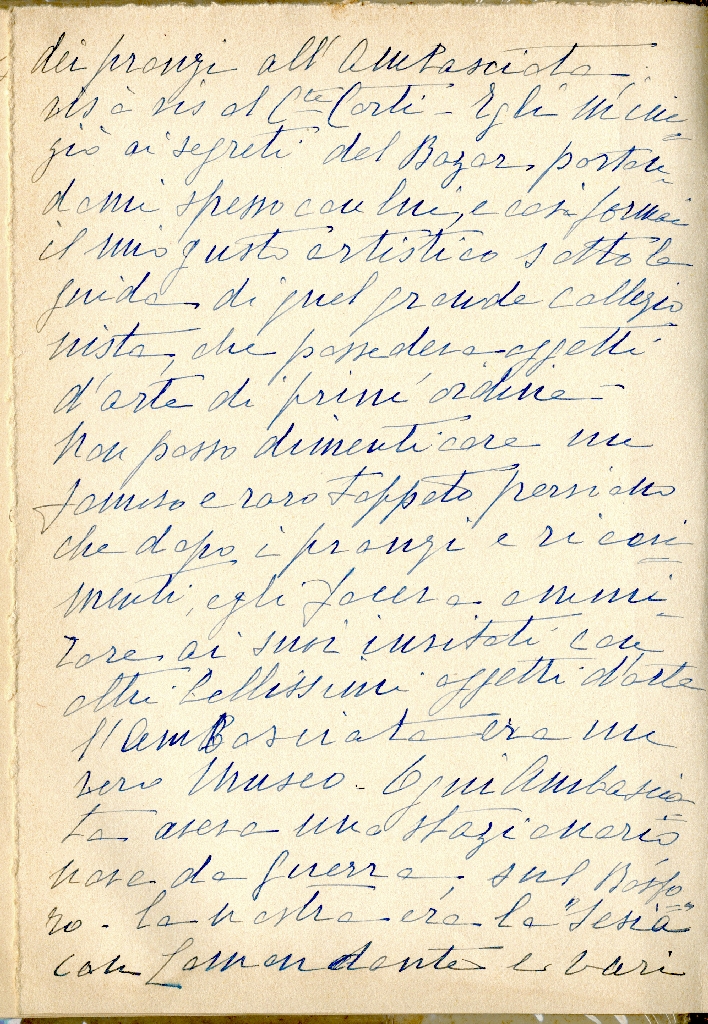 dei pranzi all'Ambasciata,
vis à vis al Cte Corti - Egli m'ini=
ziò ai segreti del Bazar, portan=
domi spesso con lui, e così formai
il mio gusto artistico sotto la
guida di quel grande collezio
nista, che possedeva oggetti
d'arte di prim'ordine -
Non posso dimenticare un
famoso e raro tappeto persiano
che dopo i pranzi e ricevi=
menti, egli faceva ammi=
rare ai suoi invitati con
altri bellissimi oggetti d'arte
l'Ambasciata era un
vero Museo. Ogni Ambascia
ta aveva una stazionario
nave da guerra, sul Bosfo=
ro - la nostra era la "Sesia"
con Comandante e vari